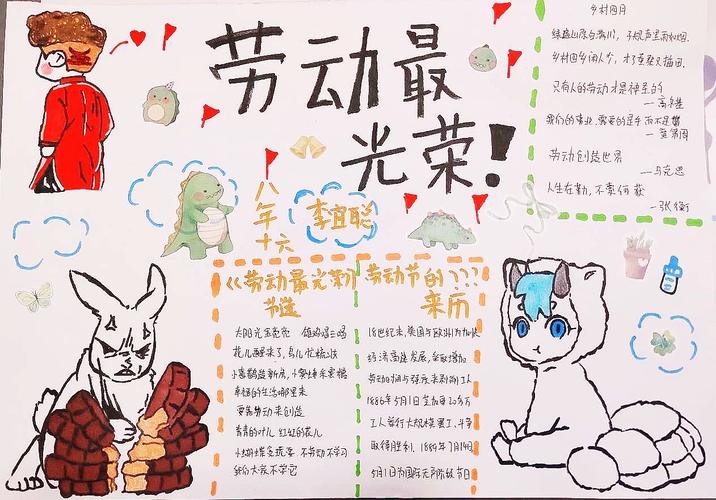 劳动最
光荣!
八年
十六
李宜聪
乡村四月
绿遍山原白满川，子规声里雨如烟.
乡村四月闲人少，才了蚕桑又插田.
只有人的劳动才是神圣的
—高尔基
我们的事业，需要的是手而不是嘴
—童第周
劳动创造世界
—马克思
人生在勤，不索何获
—张衡
《劳动最光荣》
节选
太阳光金亮亮 雄鸡唱三唱
花儿醒来了，鸟儿忙梳妆
小喜鹊造新房，小蜜蜂采蜜糖
幸福的生活哪里来
要靠劳动来创造
青青的叶儿 红红的花儿
小蝴蝶贪玩耍 不劳动不学习
我们大家不学它
劳动节的???
来历
18世纪末，美国与欧洲为加快
经济高速发展，采取增加
劳动时间与强度来剥削工人
1886年5月1日芝加哥20多万
工人举行大规模罢工，斗争
取得胜利. 1889年7月14日
5月1日为国际无产阶级节日